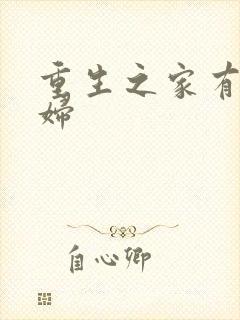 重生之家有
婦
自心卿